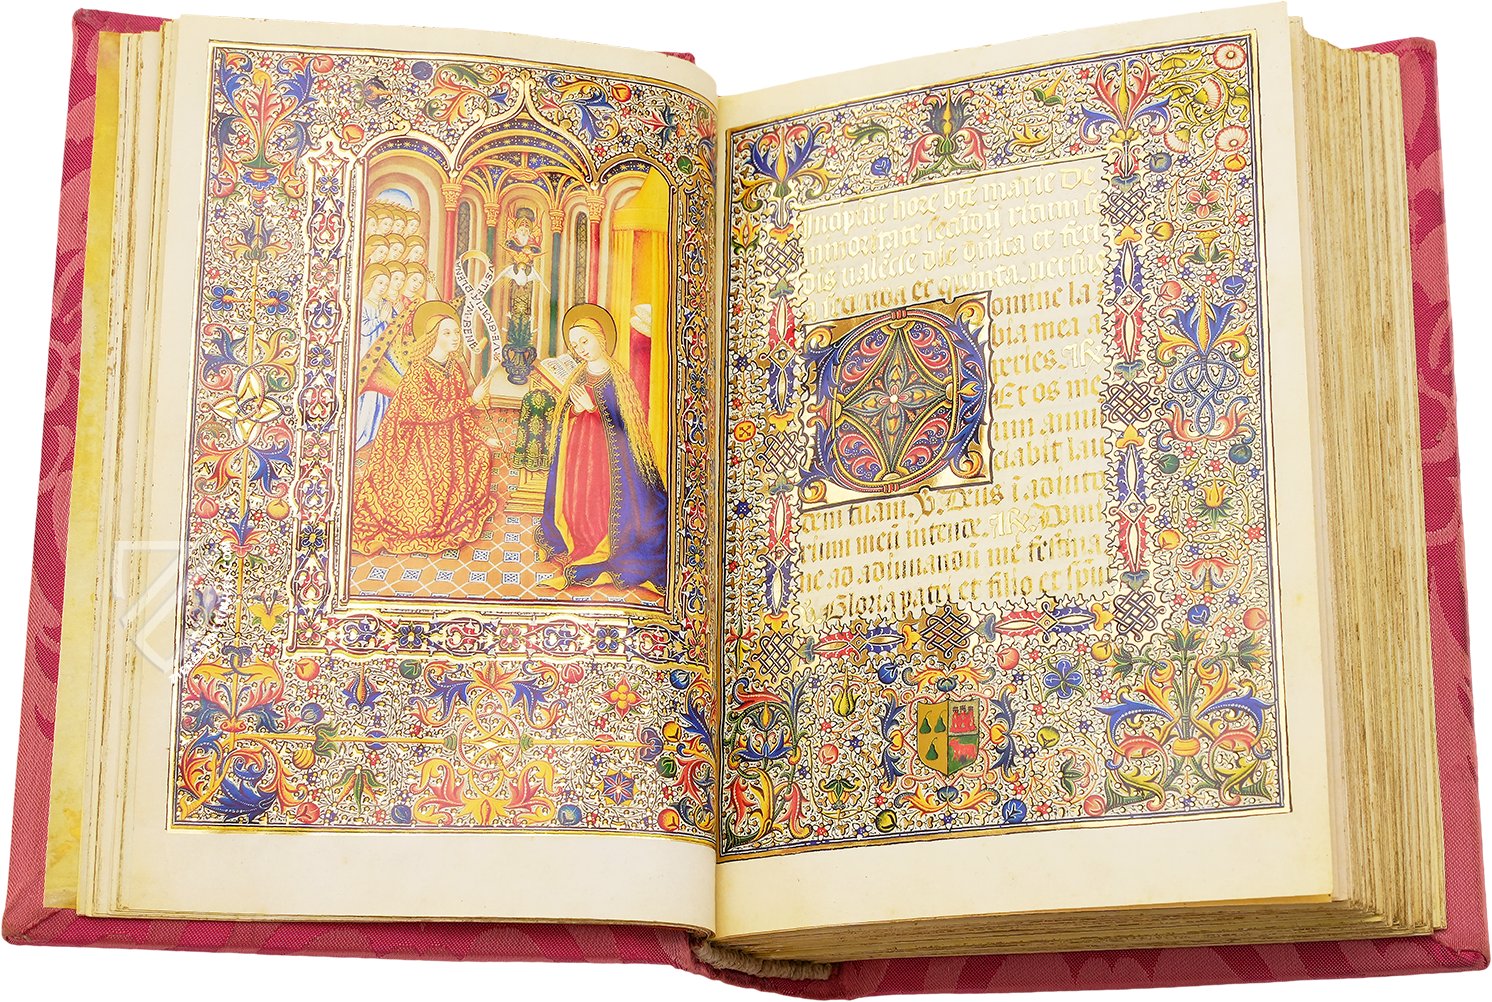 AVE GRA
Incipiunt hore bte marie de
secūdū ritum
dis die dn̄ica et feri
et quinta. versus
Domine la
bia mea a
peries. R
Et os me
um annū
ciabit lau
dem tuam. V. Deus ī adiuto
rium meū intende. R. Domi
ne ad adiuuandū me festina
V. Gloria patri et filio et spūi